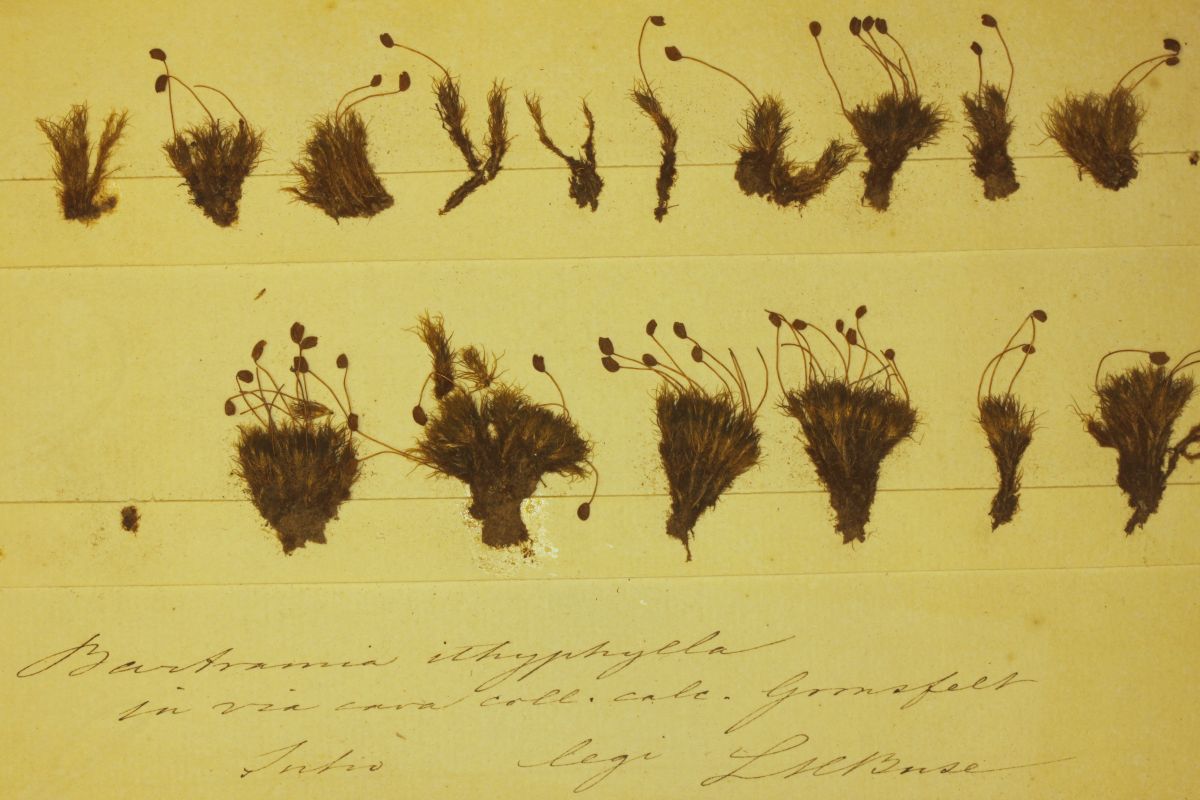 Bartramia ithyphylla
in via cava coll. calc. Gronsfelt
legi LHBuse